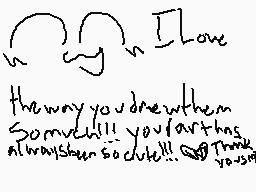 I Love
the way you drew them
so much!!! your art has
always been so cute!!! Thank
you sm